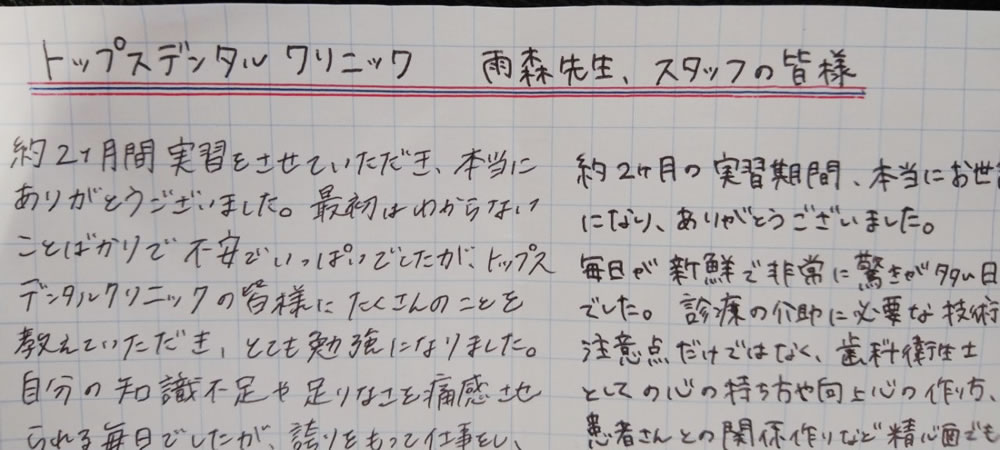 トップスデンタルクリニック 雨森先生、スタッフの皆様
約2ヶ月間実習をさせていただき、本当に
ありがとうございました。最初はわからない
ことばかりで不安でいっぱいでしたが、トップス
デンタルクリニックの皆様にたくさんのことを
教えていただき、とても勉強になりました。
自分の知識不足や足りなさを痛感させ
られる毎日でしたが、誇りをもって仕事をし、
約2ヶ月の実習期間、本当にお世話
になり、ありがとうございました。
毎日が新鮮で非常に驚きが多い日
でした。診療の介助に必要な技術
注意点だけではなく、歯科衛生士
としての心の持ち方や向上心の作り方、
患者さんとの関係作りなど精神面でも